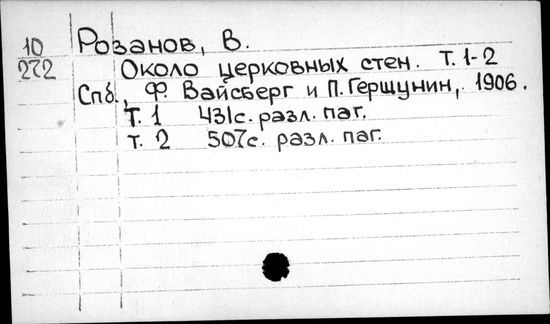 10
272
Розанов, В.
Около церковных стен. Т. 1-2
Спб., Ф. Вайсберг и П. Гершунин, 1906.
Т. 1 431с. разл. паг.
Т. 2 507с. разл. паг.